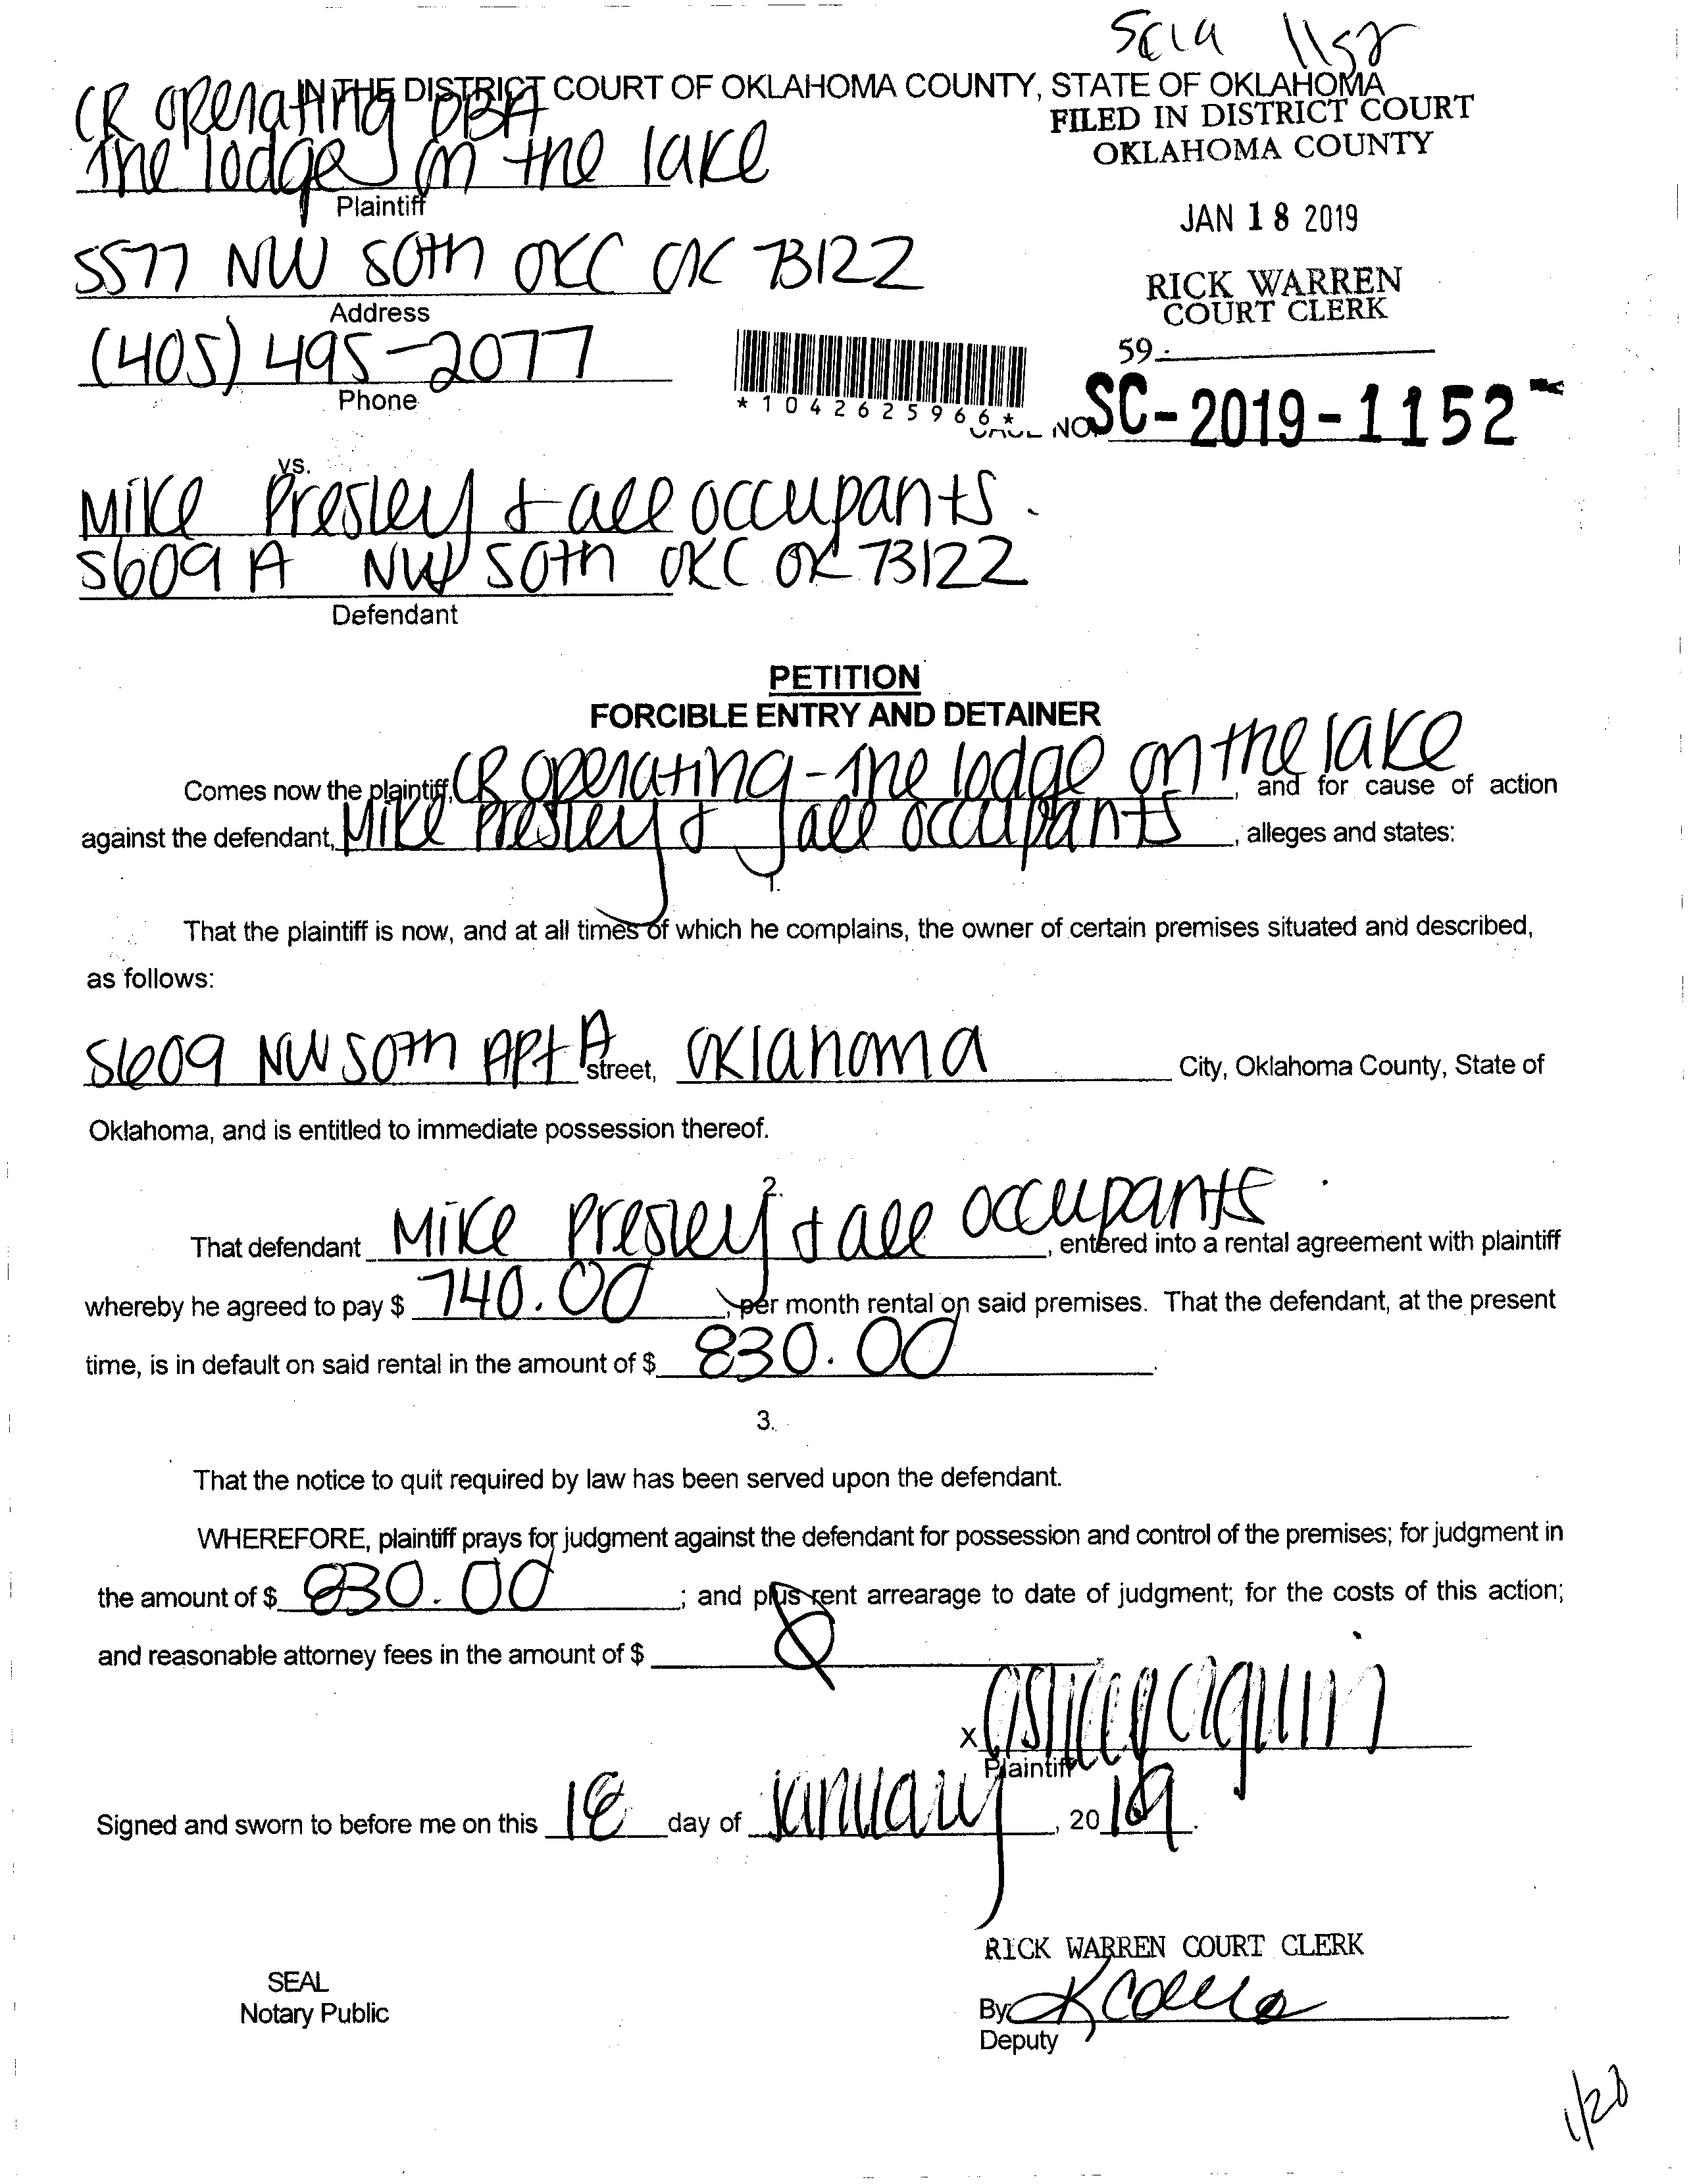 SC19 1152
IN THE DISTRICT COURT OF OKLAHOMA COUNTY, STATE OF OKLAHOMA
CR Operating DBA
The lodge on the lake
Plaintiff
FILED IN DISTRICT COURT
OKLAHOMA COUNTY
JAN 18 2019
RICK WARREN
COURT CLERK
59.
5577 NW 50th OKC OK 73122
Address
(405) 495-2077
Phone
*1042625966*
CASE NO. SC-2019-1152
vs.
Mike Presley & all occupants.
5609 A NW 50th OKC OK 73122
Defendant
PETITION
FORCIBLE ENTRY AND DETAINER
Comes now the plaintiff, CR Operating - The lodge on the lake, and for cause of action
against the defendant, Mike Presley & all occupants, alleges and states:
1.
That the plaintiff is now, and at all times of which he complains, the owner of certain premises situated and described,
as follows:
5609 NW 50th APT A street, Oklahoma City, Oklahoma County, State of
Oklahoma, and is entitled to immediate possession thereof.
2.
That defendant Mike Presley & all occupants, entered into a rental agreement with plaintiff
whereby he agreed to pay $ 740.00, per month rental on said premises. That the defendant, at the present
time, is in default on said rental in the amount of $ 830.00.
3.
That the notice to quit required by law has been served upon the defendant.
WHEREFORE, plaintiff prays for judgment against the defendant for possession and control of the premises; for judgment in
the amount of $ 830.00; and plus rent arrearage to date of judgment; for the costs of this action;
and reasonable attorney fees in the amount of $ 0
x
Plaintiff
Signed and sworn to before me on this 18 day of January, 2019.
RICK WARREN COURT CLERK
SEAL
Notary Public
By
Deputy
1/28